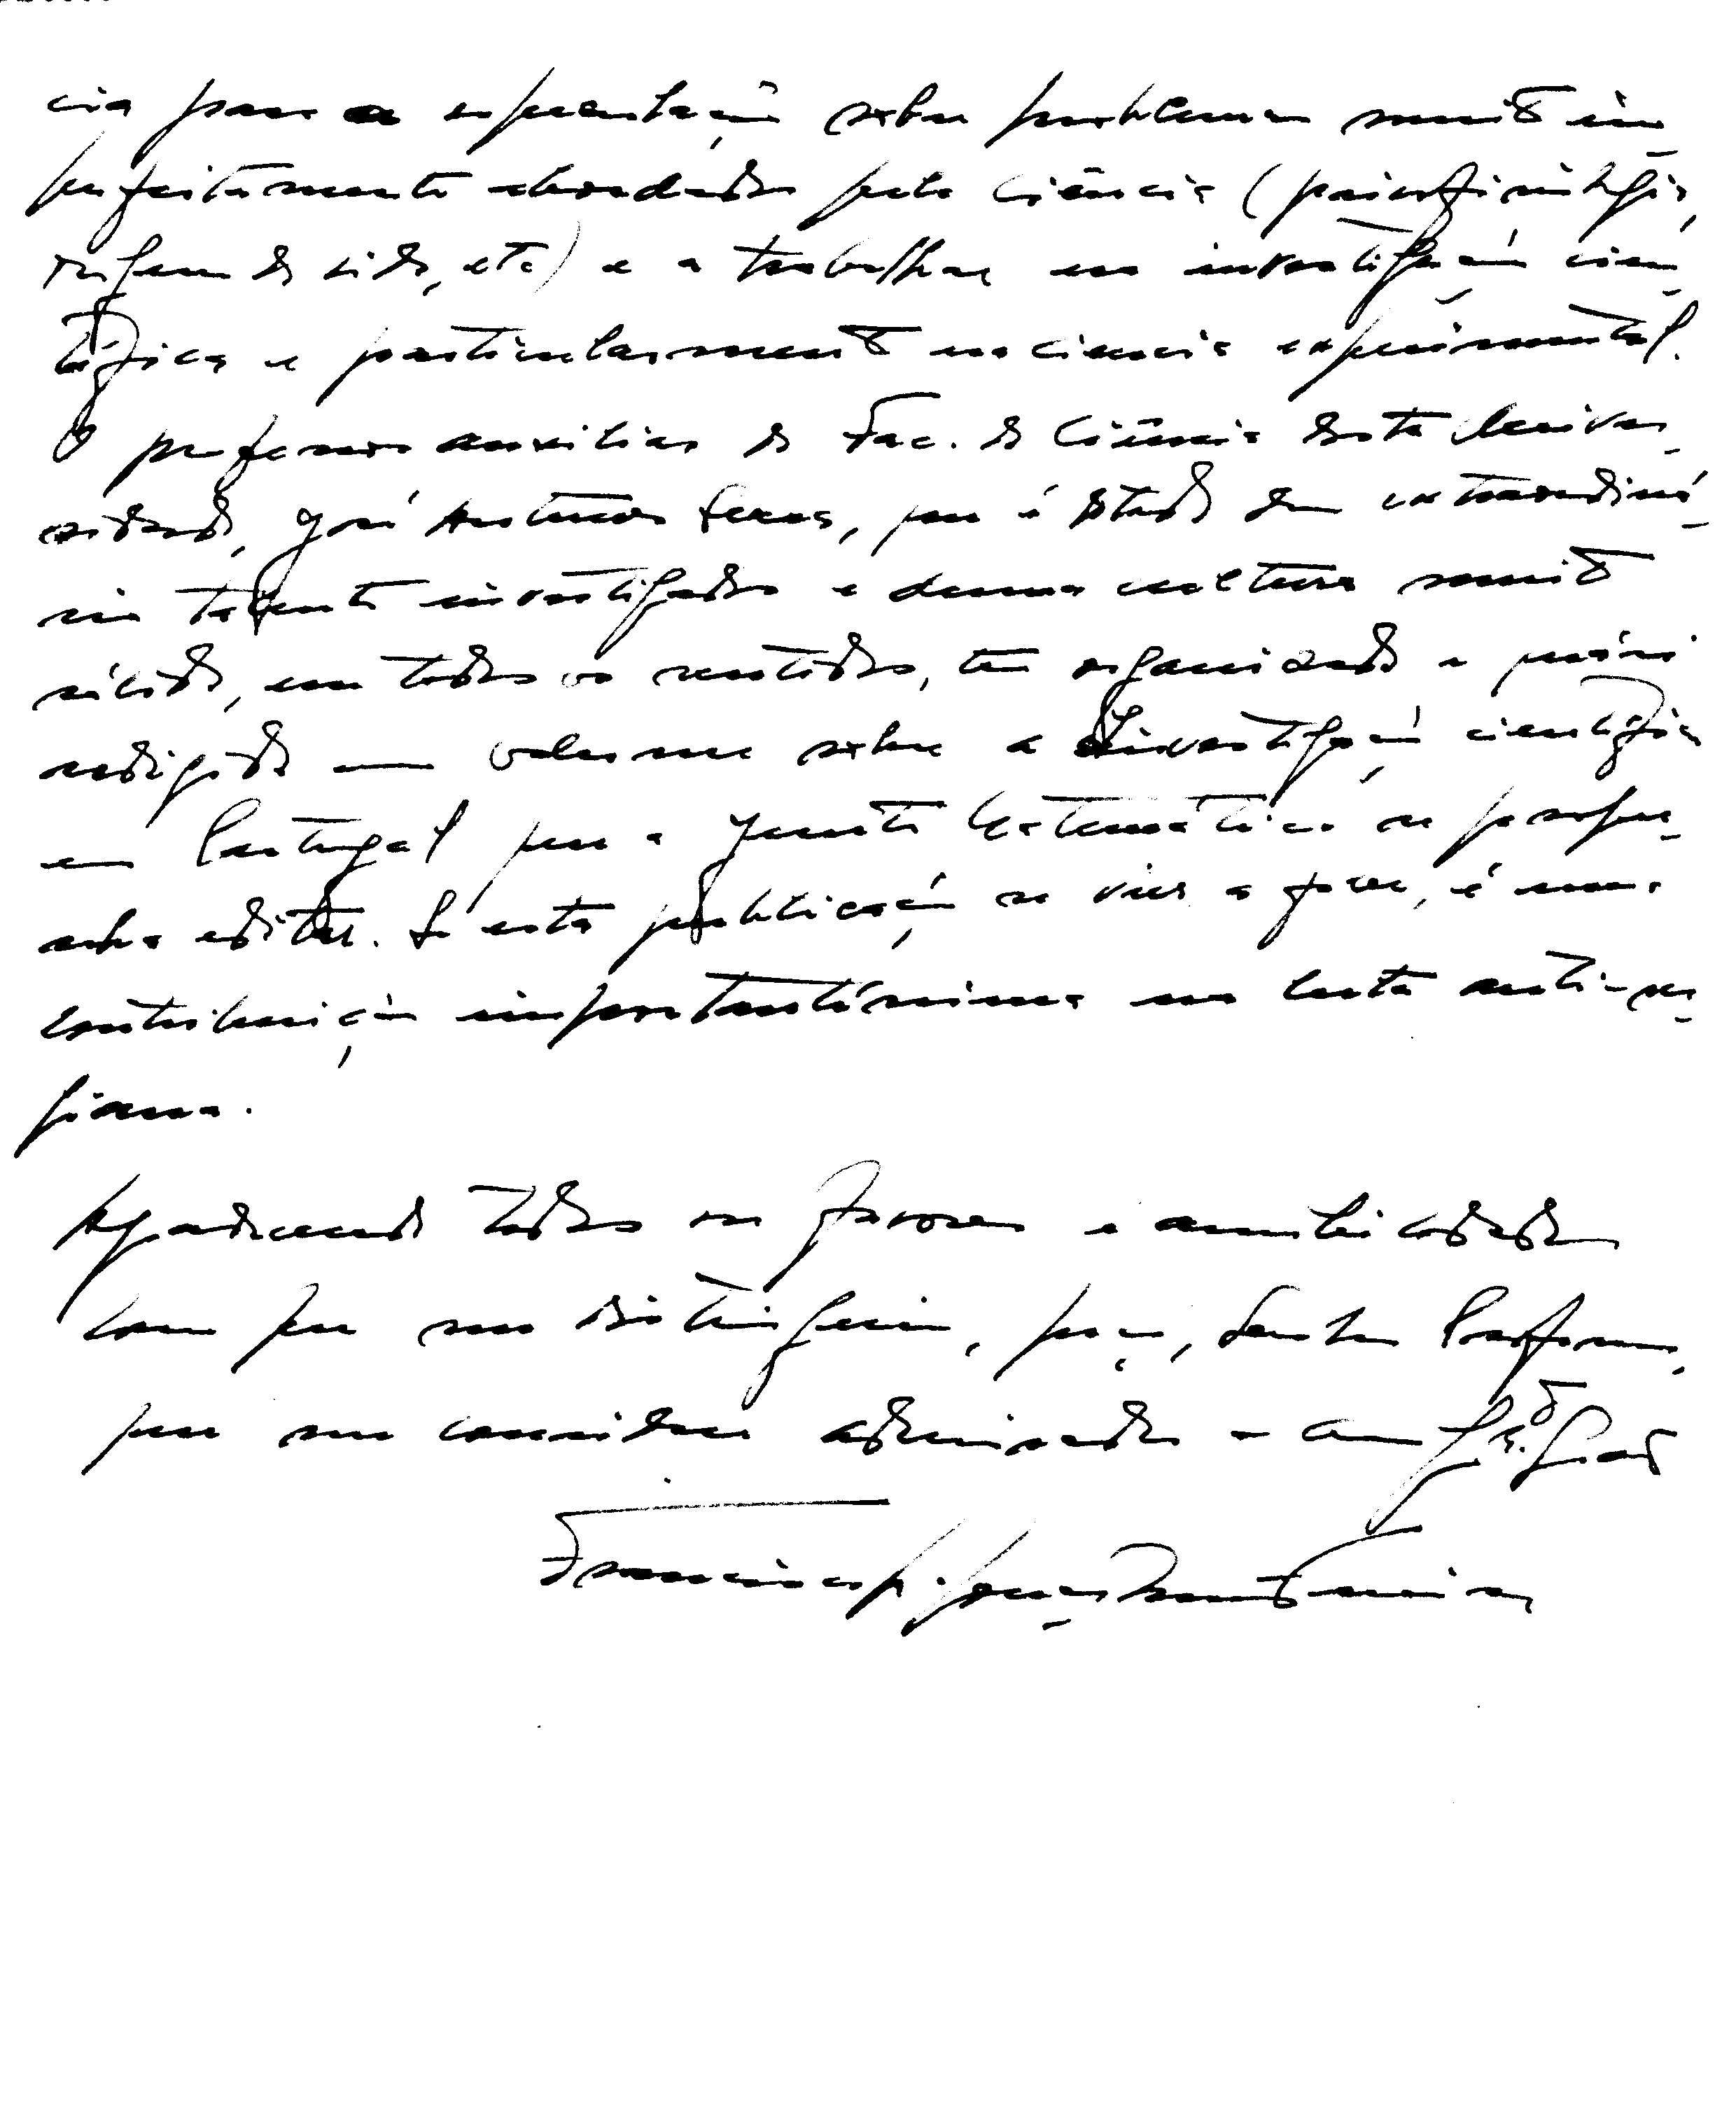 cia para a especulação sobre problemas muito im-
perfeitamente abordados pela Ciência (psicofisiologia,
origem da vida, etc) e a trabalhar na investigação cien-
tífica e particularmente na ciencia experimental.
O professor auxiliar da Fac. de Ciências desta Univer-
sidade, José Antunes Serra, que é dotado dum extraordiná-
rio talento investigador e duma cultura muito
sólida, em todos os sentidos, tem organizado e quási
redigido um volume sobre a investigação científica
em Portugal que a Junta Matemática se propu-
nha editar. Se esta publicação se vier a fazer, é uma
contribuição importantíssima na luta anti-ser-
giana.
Agradecendo todos os favores e amabilidades
com que me distinguiu, peço, Senhor Professor,
que me considere admirador e am.go m.to grato
Francisco